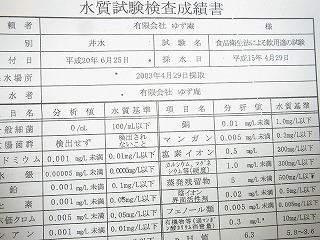 水質試験検査成績書
有限会社 ゆず庵 様
井水 試験名 食品衛生法による飲用適の試験
付 平成20年6月25日 採水日 平成15年 4月29日
水場所 2003年4月29日採取
水者 有限会社 ゆず庵
目名 分析値 水質基準 項目名 分析値 水質基準
般細菌 0/mL 100/mL以下 銅 0.01 mg/L未満 1.0mg/L以下
菌群 検出せず 検出されないこと マンガン 0.005 mg/L未満 0.3mg/L以下
ドミウム 0.001 mg/L未満 0.01mg/L以下 塩素イオン 0.5 mg/L未満 200mg/L以下
水銀 0.00005 mg/L未満 カルシウム、マグネシウム等(硬度) 1.0 mg/L未満 300mg/L以下
鉛 0.001 mg/L未満 0.1mg/L以下 蒸発残留物 5 mg/L未満 500mg/L以下
ヒ素 0.001 mg/L未満 0.05mg/L以下 陰イオン界面活性剤 0.02 mg/L未満 0.5mg/L以下
価クロム 0.005 mg/L未満 0.05mg/L以下 フェノール類 0.005 mg/L未満
アン 0.001 mg/L未満 有機物等 0.3 mg/L 10mg/L以下
値 6.3 5.8~8.6